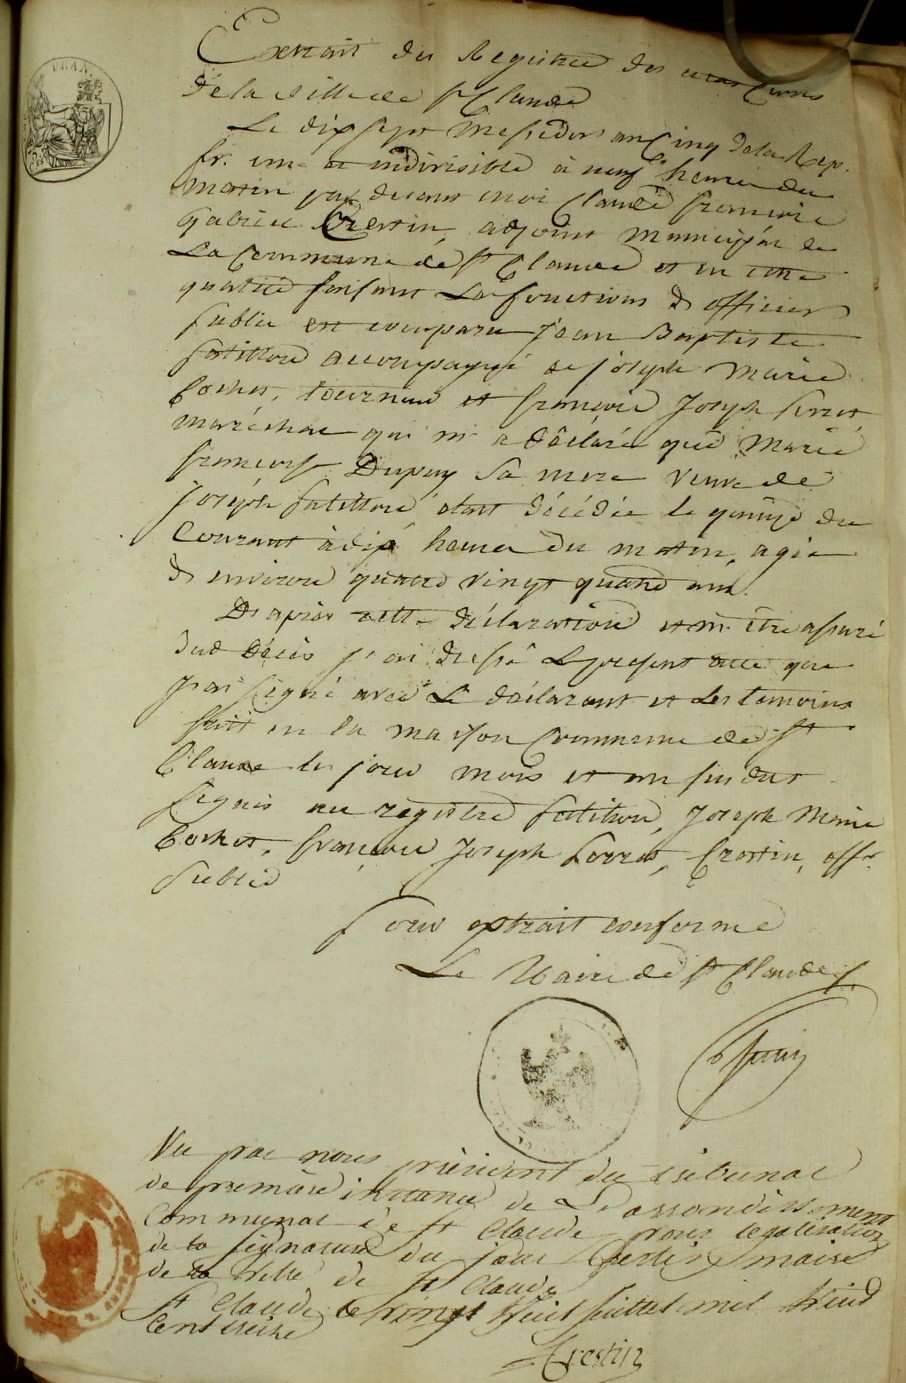 FRAN
Extrait des Registres des
de la ville de St Claude
Le dix sept Messidor an Cinq de la Rep.
fr. une et indivisible à neuf heures du
matin par devant moi Claude françois
Gabriel Crestin, adjoint municipal de
La Commune de St Claude et en cette
qualité faisant Les fonctions d'officier
public est comparu Jean Baptiste
accompagné de joseph Marie
tourneur et françois Joseph
maréchal qui m'a déclaré que Marie
françoise Dupuy sa mere veuve de
Joseph étoit décédée le quinze du
Courant à dix heures du matin, agée
d'environ quatre vingt quatre ans.
D'après cette déclaration et m'être assuré
dud décès j'ai dressé Le présent acte que
j'ai signé avec Le déclarant et Les temoins
fait en la maison Commune de St
Claude les jour mois et an susdits
signés au registre Joseph Marie
françois Joseph Crestin, offr.
public
pour extrait conforme
Le Maire de St Claude
Vu par nous président du tribunal
de première instance de L'arrondissement
communal de St Claude pour legalisation
de la signature du maire
de la ville de St Claude
St Claude le vingt huit juillet mil huit
cent treize
Crestin